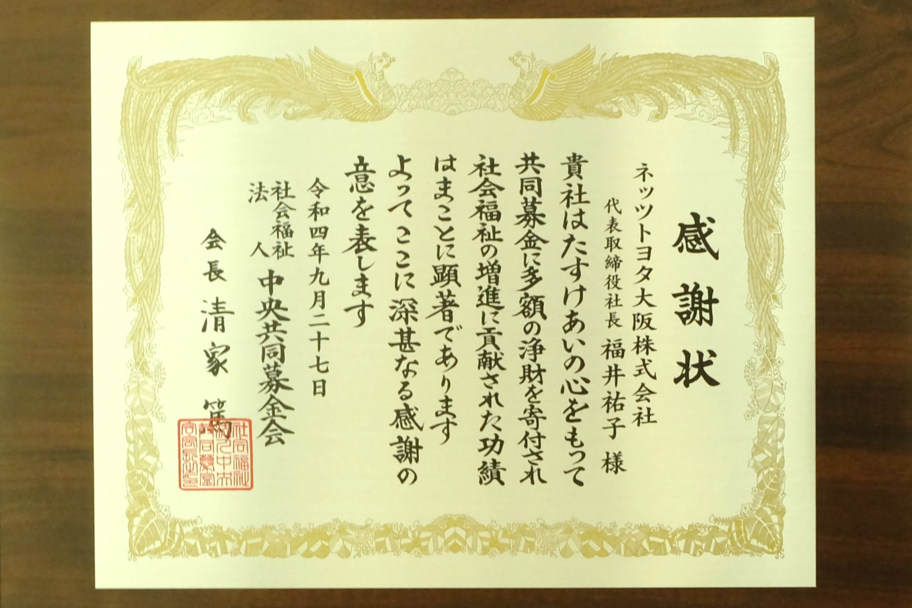 感謝状
ネッツトヨタ大阪株式会社
代表取締役社長 福井祐子 様
貴社はたすけあいの心をもって
共同募金に多額の浄財を寄付され
社会福祉の増進に貢献された功績
はまことに顕著であります
よってここに深甚なる感謝の
意を表します
令和四年九月二十七日
社会福祉法人 中央共同募金会
会長 清家 篤